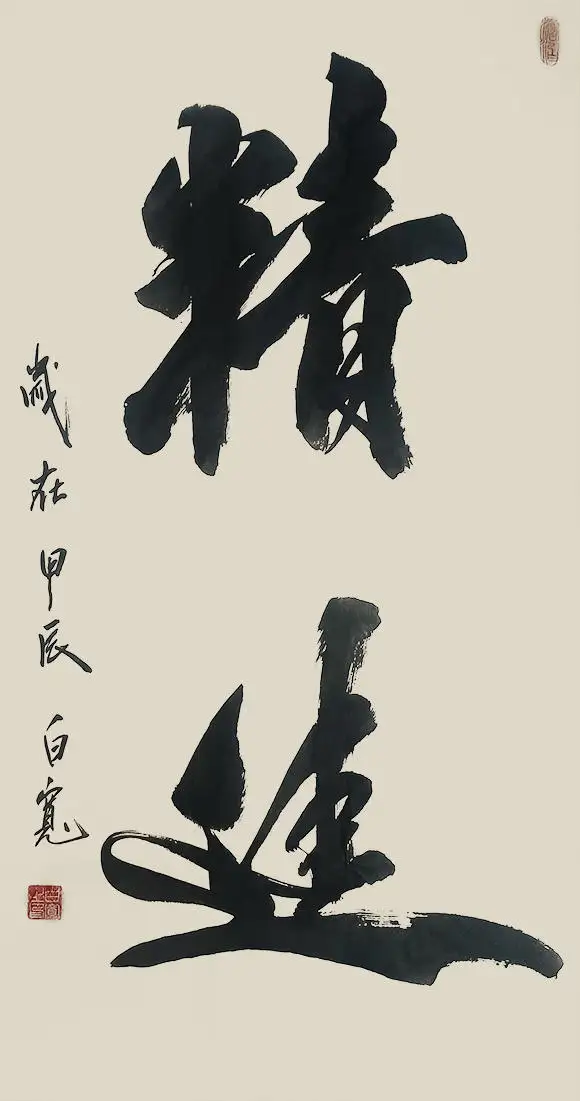 精進
歲在甲辰 白寬